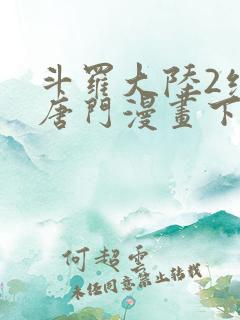 斗羅大陸2
唐門漫畫下
何超雲
未经同意禁止转载